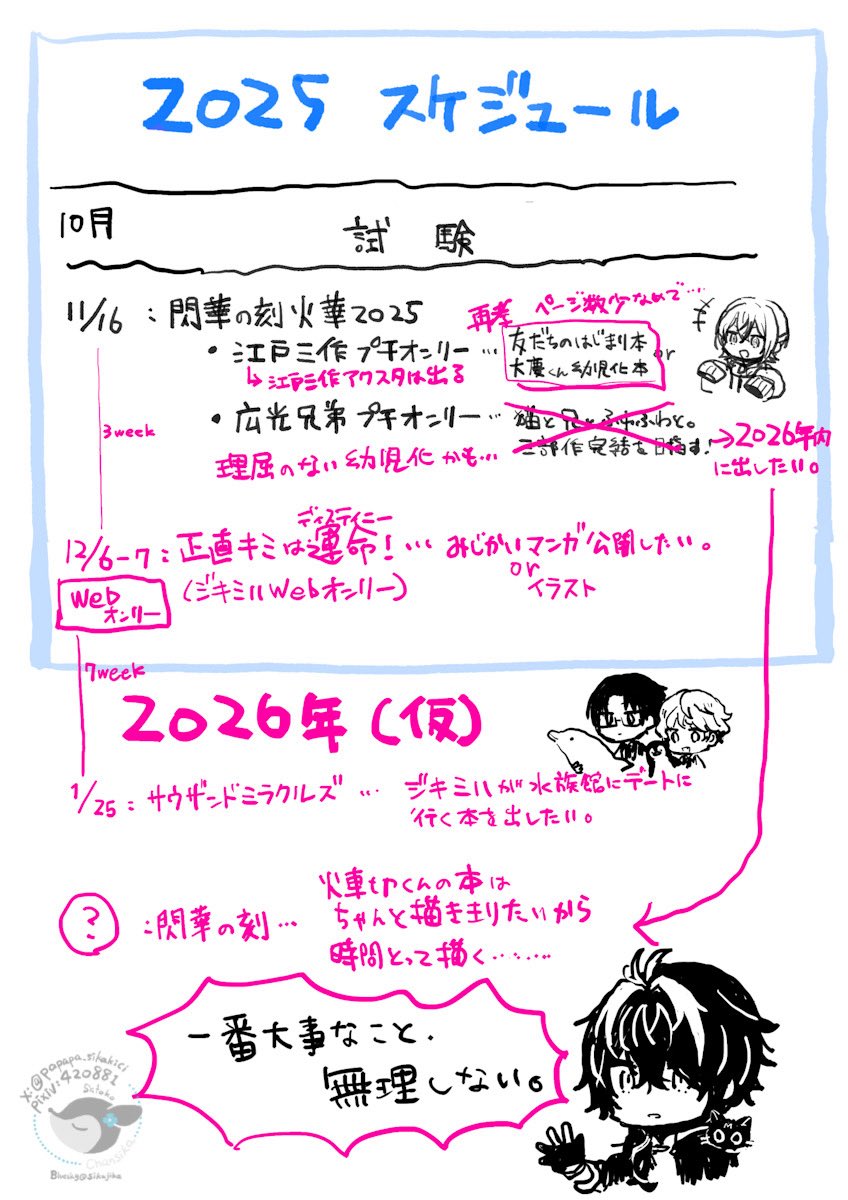 2025 スケジュール
10月 試験
11/16 : 閃華の刻 火華2025
・江戸三作 プチオンリー…
再考 ページ数少なめで…
友だちのはじまり本
or
大慶くん幼児化本
↳江戸三作アクスタは出る
・広光兄弟 プチオンリー…
猫と兄とふわふわと。
三部作完結を目指す!
→2026年内
に出したい。
理屈のない幼児化かも…
3week
12/6-7 : 正直キミは運命!… みじかいマンガ公開したい。
ディスティニー
or
イラスト
Web
オンリー
(ジキミハWebオンリー)
7week
2026年(仮)
1/25 : サウザンドミラクルズ … ジキミハが水族館にデートに
行く本を出したい。
? : 閃華の刻…
火車切くんの本は
ちゃんと描き きりたいから
時間とって描く……
一番大事なこと、
無理しない。
X:@papapa_sikakici
pixiv:420881
Sikako
Chansika
Bluesky@sikajika